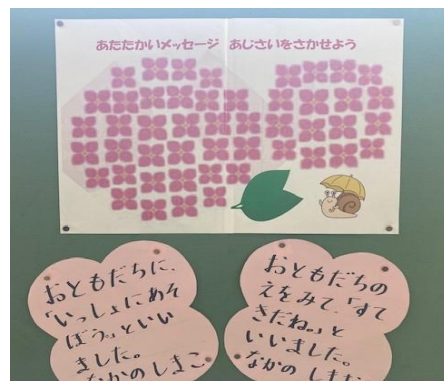 あたたかいメッセージ あじさいをさかせよう
おともだちに、
「いっしょにあそ
ぼう。」といい
ました。
なかの しまこ
おともだちの
えをみて、「すて
きだね。」と
いいました。
なかの しまこ